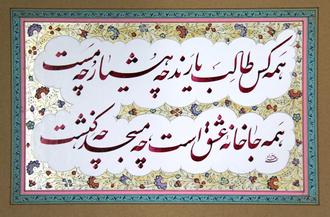 همه کس طالب یارند چه هشیار و چه مست
همه جا خانه عشق است چه مسجد چه کنشت